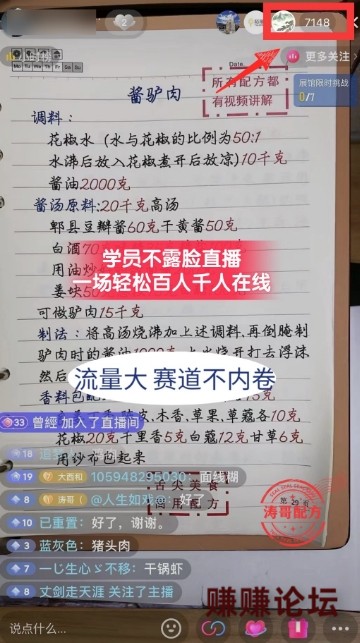 7148
小时榜
更多关注
Date
Mo Tu We Th Fr Sa Su
酱驴肉
所有配方都
有视频讲解
展馆限时挑战
0/7
调料:
花椒水(水与花椒的比例为50:1
水沸后放入花椒煮开后放凉)10千克
酱油2000克
酱汤原料:20千克高汤
郫县豆瓣酱60克干黄酱50克
白酒70
学员不露脸直播
用油炒
一场轻松百人千人在线
姜块50
可做驴肉15千克
制法:将高汤烧沸加上述调料,再倒腌制
驴肉时的酱油1000克,上火烧开打去浮沫
然后
流量大 赛道不内卷
香料包配
33 曾經 加入了直播间
木香,草果,草蔻各10克
花椒20克千里香5克白蔻12克甘草6克
用纱布包起来
19 大西和 105948295030:面线糊
8 涛哥 @人生如戏@:好了
舌尖美食
商用配方
涛哥配方
10 已重置:好了,谢谢。
3 蓝灰色:猪头肉
8 一じ生心ゞ不移:干锅虾
8 丈剑走天涯 关注了主播
赚赚论坛
说点什么...